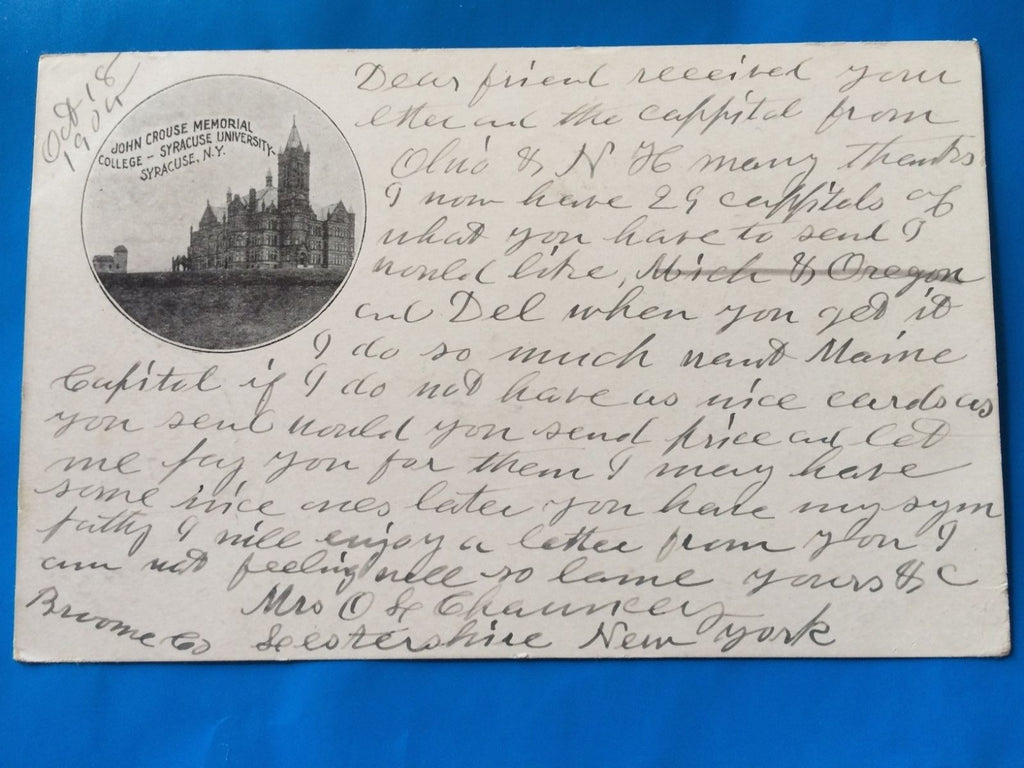 Oct 18
1904
JOHN CROUSE MEMORIAL
COLLEGE - SYRACUSE UNIVERSITY.
SYRACUSE, N.Y.
Dear friend received your
letter and the cappital from
Ohio & N H many thanks
I now have 29 cappitals of
what you have to send I
would like, Mich & Oregon
and Del when you get it
I do so much want Maine
Capital if I do not have as nice cards as
you send would you send price and let
me pay you for them I may have
some nice ones later you have my sym
pathy I will enjoy a letter from you I
am not feeling well so lame yours & C
Mrs O L Chauncey
Broome Co Lestershire New York